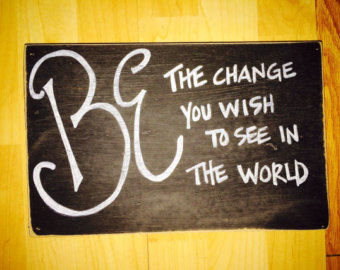 BE THE CHANGE
YOU WISH
TO SEE IN
THE WORLD